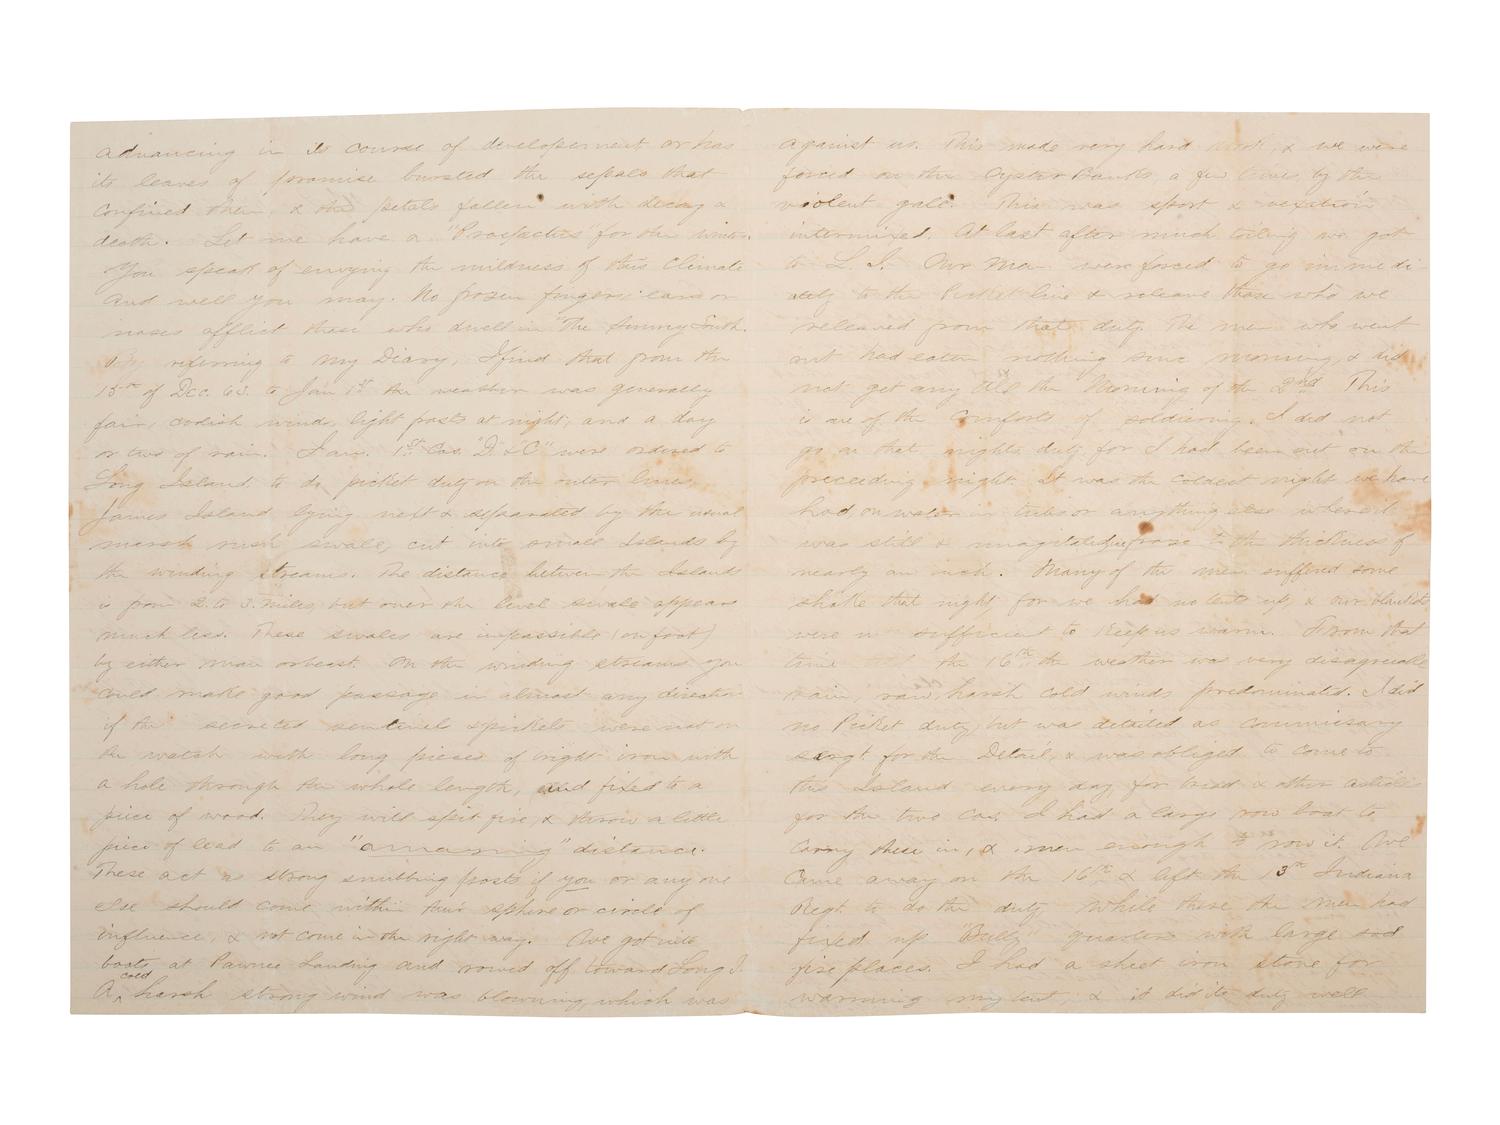 advancing in its course of developement or has
its leaves of promise bursted the sepals that
confined them, & the petals fallen with decay &
death. Let me have a "Prospectus for the winter.
You speak of envying the mildness of this Climate
and well you may. No frozen fingers, ears or
noses afflict those who dwell in "The Sunny South.
By referring to my Diary, I find that from the
15th of Dec. 63. to Jan 1st the weather was generally
fair, coolish winds, light frosts at night, and a day
or two of rain. Jan. 1st Cos. "D & C" were ordered to
Long Island to do picket duty on the outer lines,
James Island lying next & separated by the usual
marsh rush swale, cut into small Islands by
the winding streams. The distance between the Islands
is from 2 to 3 miles, but over the level swale appears
much less. These swales are impassible (on foot)
by either man or beast. On the winding streams you
could make good passage in almost any direction
if the secreted sentinel & pickets were not on
the watch with long pieces of bright iron with
a hole through the whole length, and fixed to a
piece of wood. They will spit fire, & throw a little
piece of lead to an "amazing" distance.
These act as strong snubbing posts if you or any one
else should come within their sphere or circle of
influence, & not come in the right way. We got into
boats at Pawnee Landing and rowed off toward Long I.
A cold harsh strong wind was blowning, which was
against us. This made very hard work, & we were
forced on the Oyster Banks, a few times, by the
violent gale. This was sport & vexation
intermixed. At last after much toiling we got
to L. I. Our Men were forced to go immedi-
ately to the Picket line & releave those who we
releaved from that duty. The men who went
out had eaten nothing since morning, & did
not get any till the Morning of the 2nd This
is one of the comforts of soldiering. I did not
go on that nights duty for I had been out on the
preceeding night. It was the coldest night we have
had, on water in tubs or anything else where it
was still & unagitated, ice froze to the thickness of
nearly an inch. Many of the men suffered some
shake that night for we had no tents up, & our blankets
were in sufficient to keep us warm. From that
time the 16th the weather was very disagreeable
rain, raw, harsh cold winds predominated. I did
no Picket duty, but was detailed as commissary
sergt. for the Detail, & was obliged to come to
this Island every day for bread & other articles
for the two Cos. I had a large row boat to
carry these in, & men enough to row it. We
Came away on the 16th & left the 13th Indiana
Regt. to do the duty. While there the men had
fixed up "Bully" quarters with large sod
fire places. I had a sheet iron stove for
warming my tent, & it did its duty well